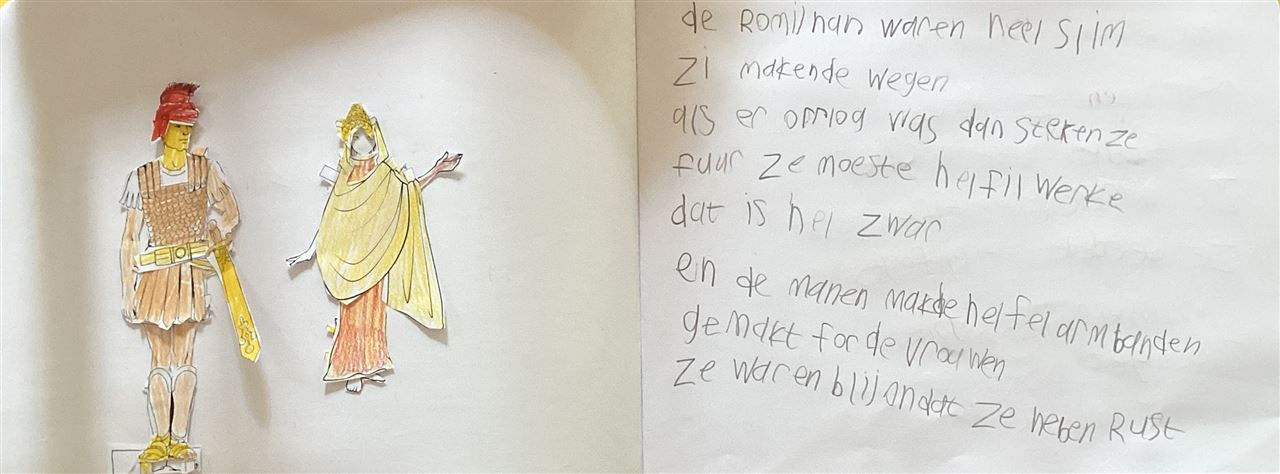 de Romijnan waren heel slim
zi makende wegen
als er orrlog was dan steken ze
fuur ze moeste helfil werke
dat is hel zwar
en de manen makde helfel armbanden
gemakt for de vrouwen
ze waren blij ondat ze heben Rust